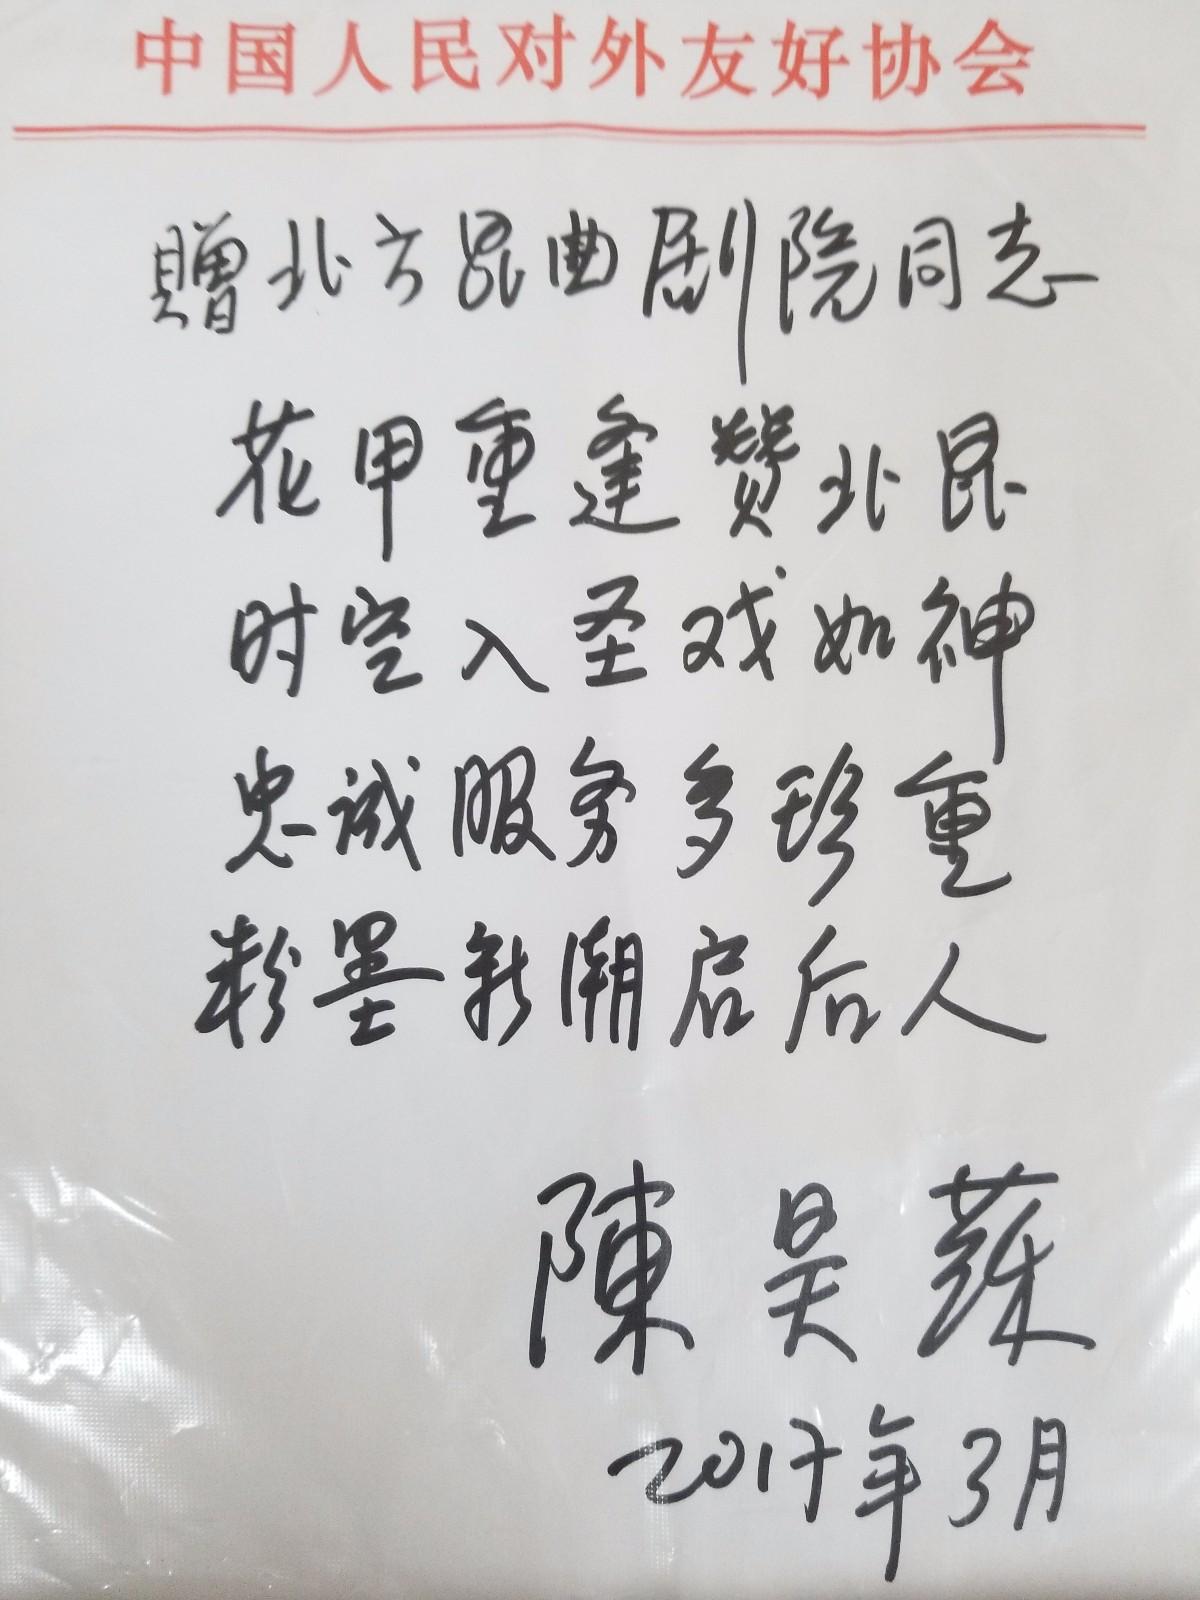 中国人民对外友好协会
贈北方昆曲剧院同志
花甲重逢赞北昆
时空入圣戏如神
忠诚服务多珍重
粉墨新潮启后人
陳昊蘇
2017年3月